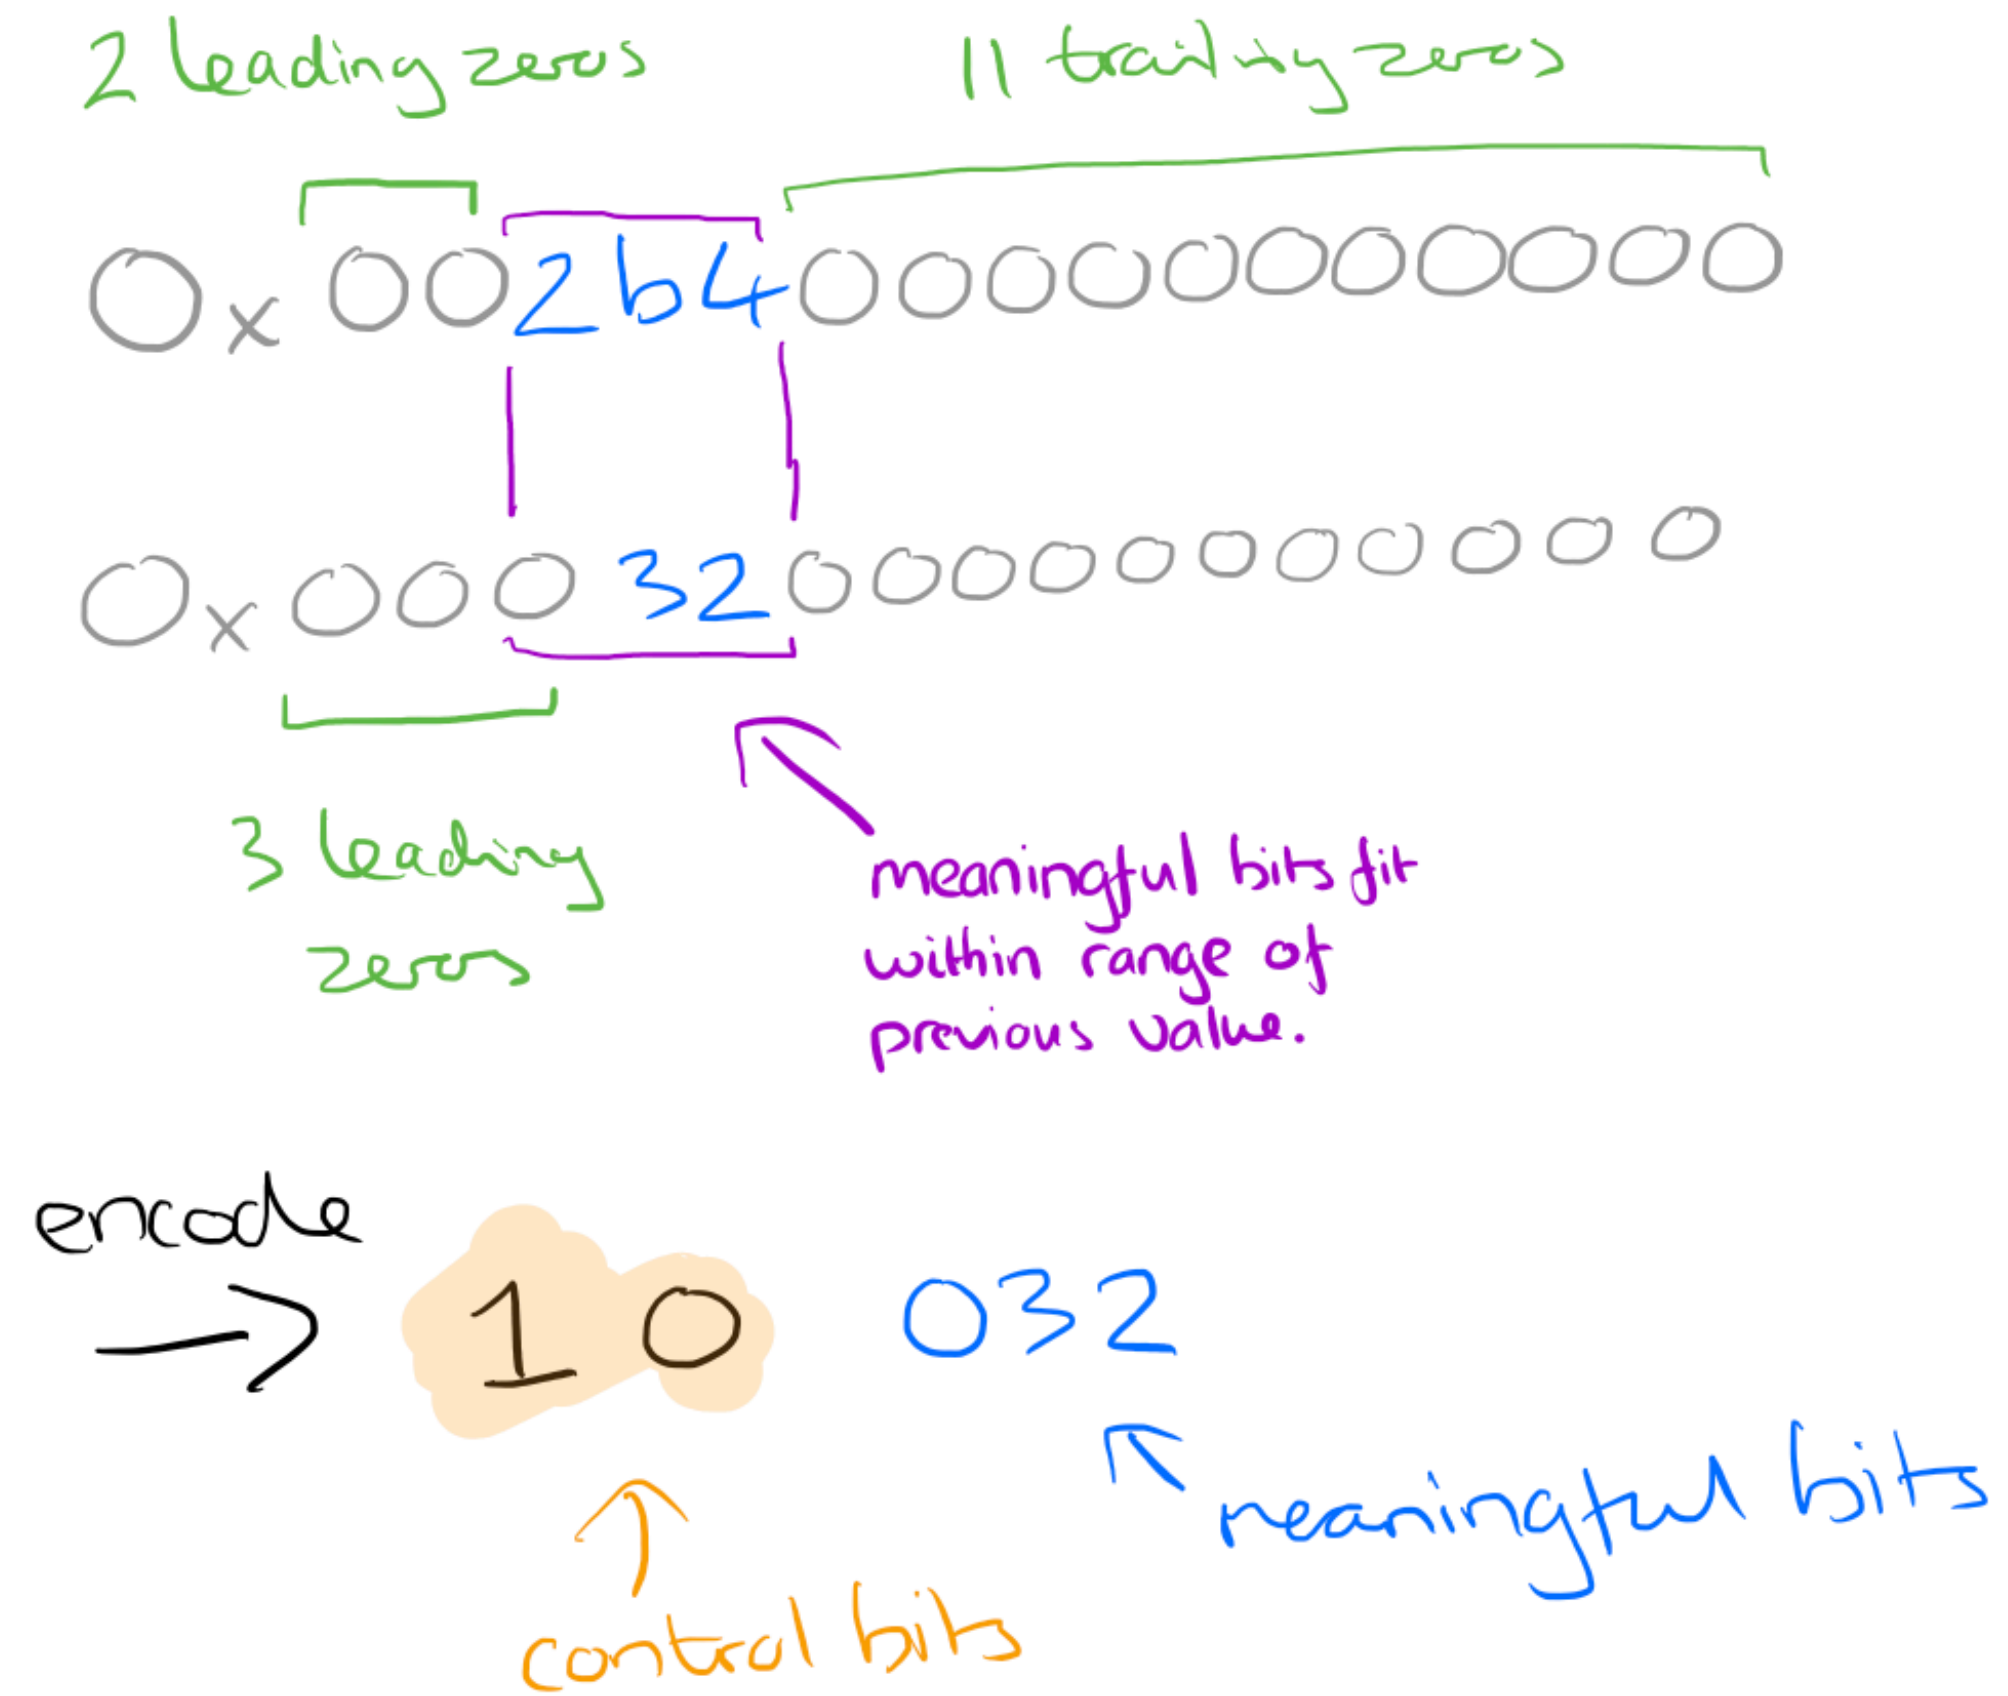 2 leading zeros 11 trailing zeros
0x002b400000000000
0x0003200000000000
3 leading
zeros
meaningful bits fit
within range of
previous value.
encode
→ 10 032
meaningful bits
control bits